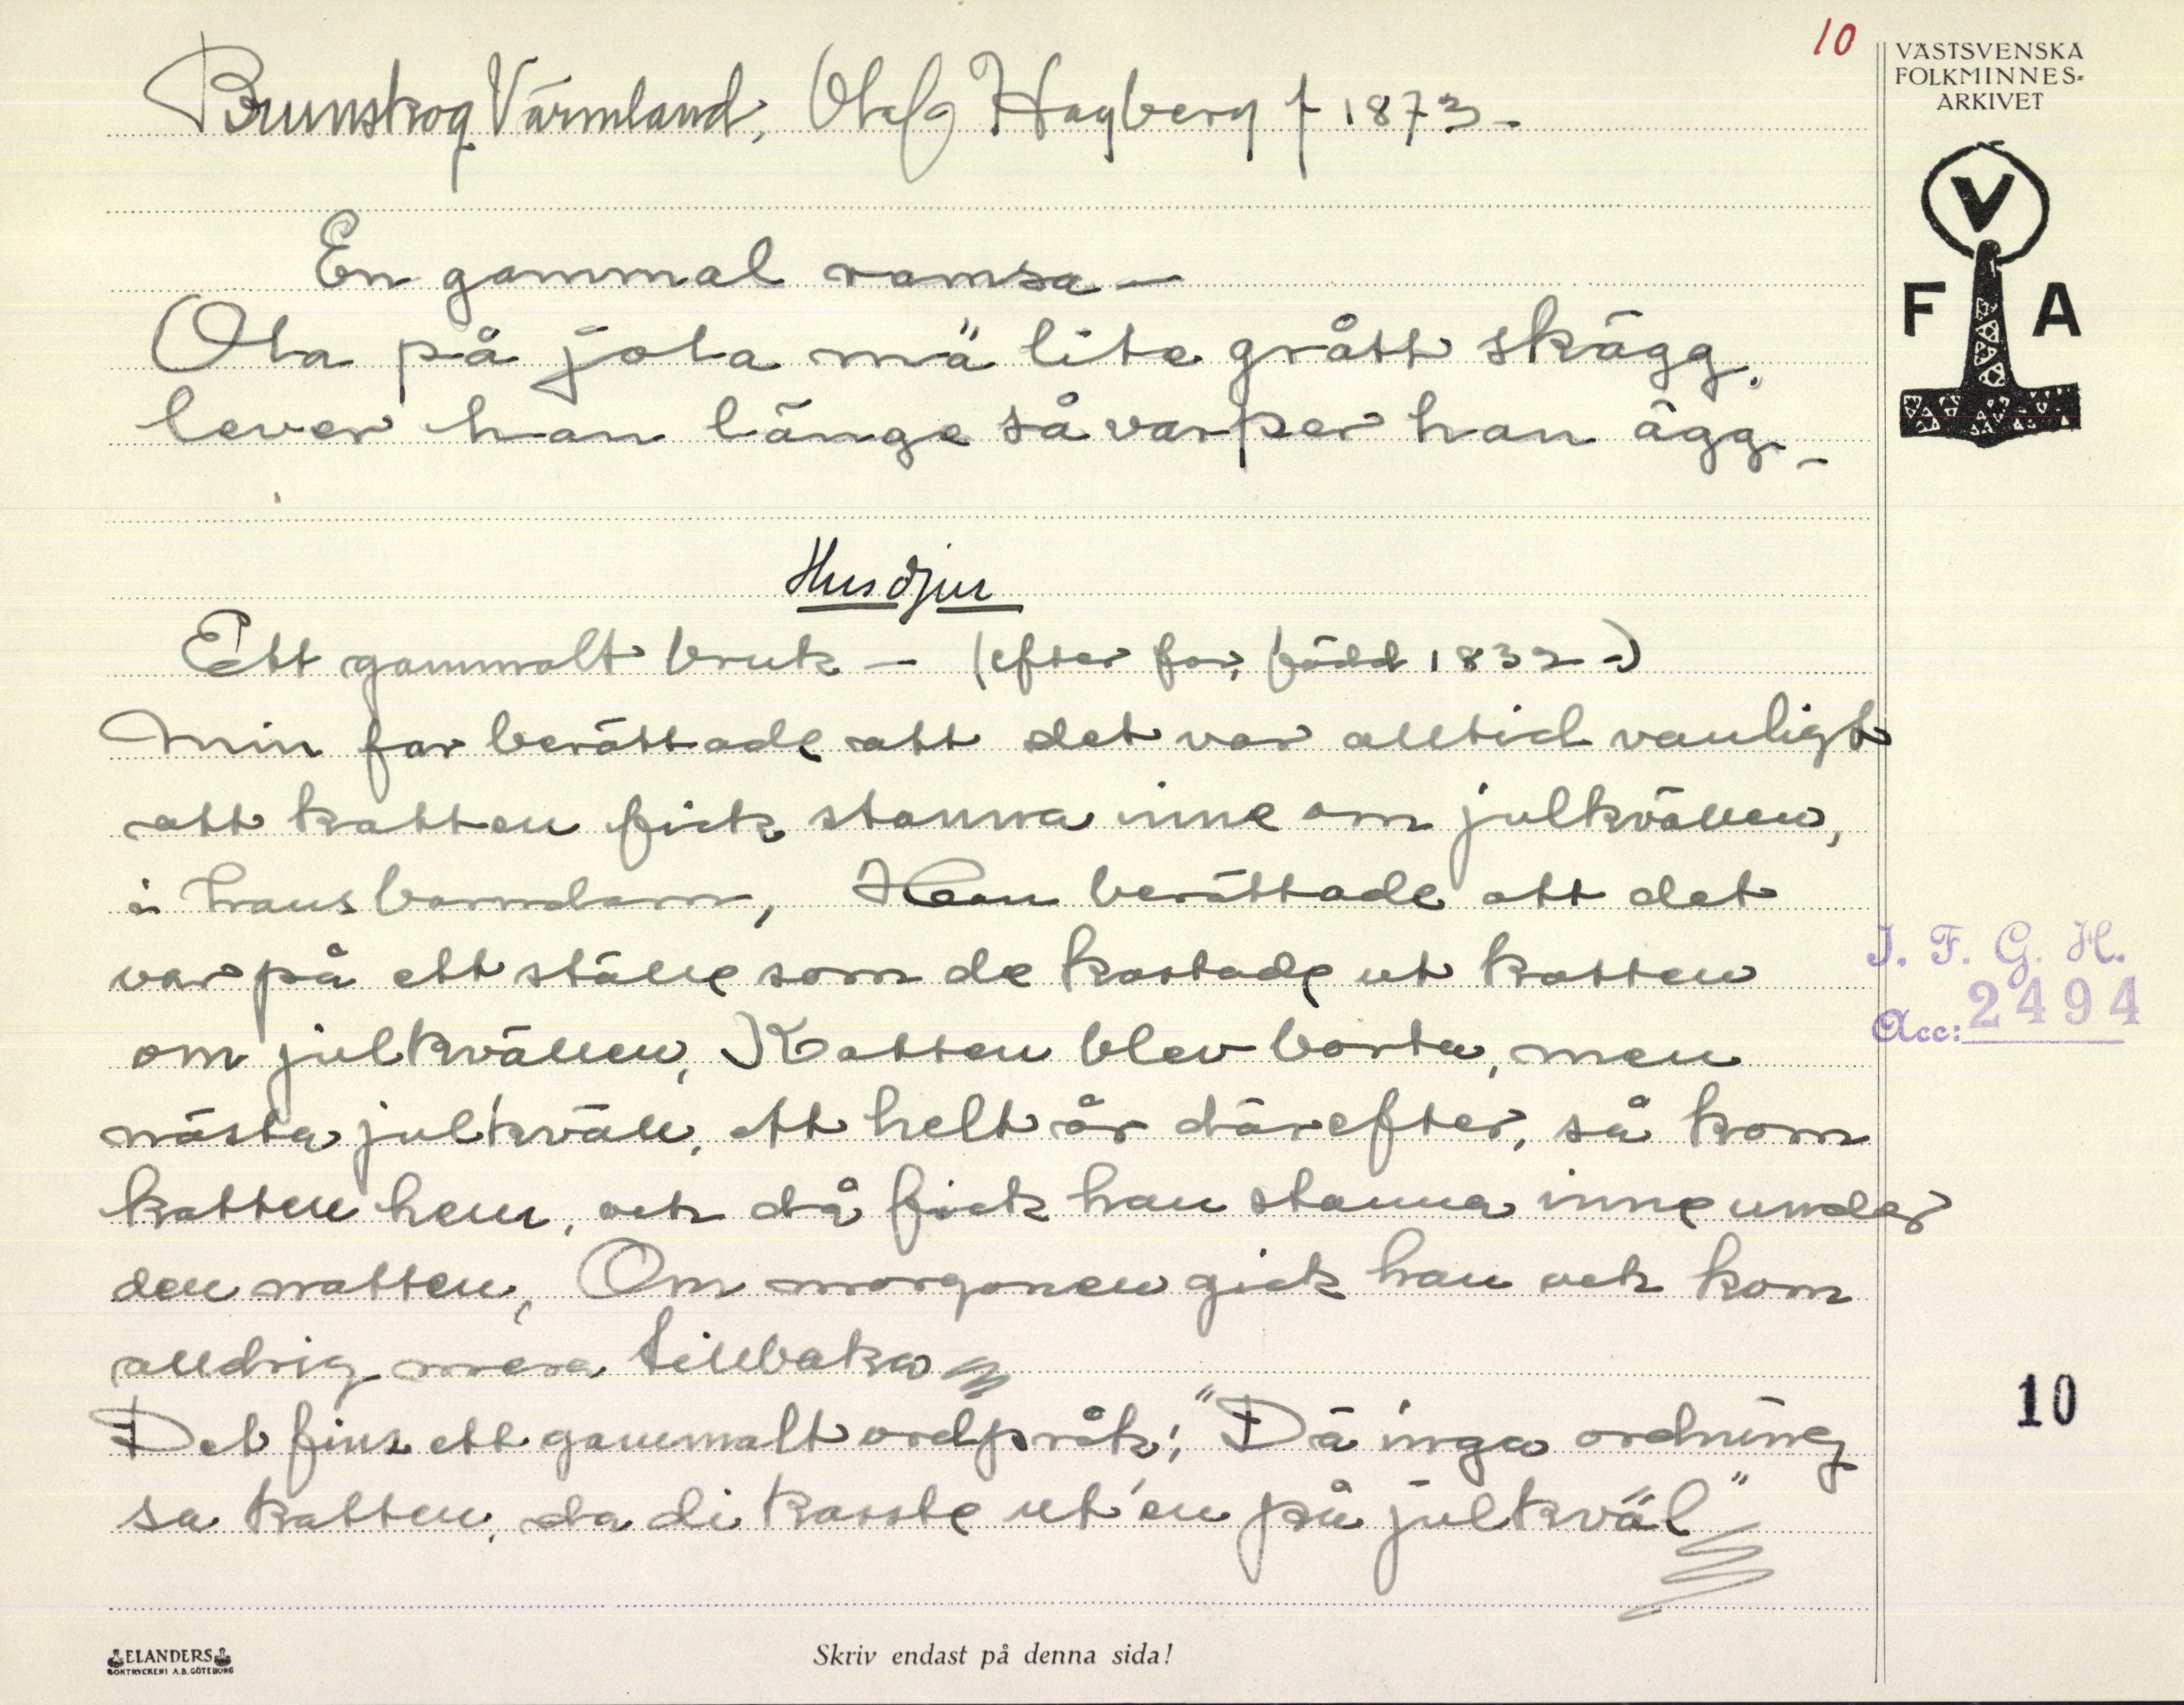 10
VÄSTSVENSKA
FOLKMINNES-
ARKIVET
V
F A
Brunskog Värmland, Olof Hagberg f 1873-
En gammal ramsa-
Ola på jola mä lite grått skägg.
lever han länge så varper han ägg-
Husdjur
Ett gammalt bruk - (efter far, född 1832-)
Min far berättade att det var alltid vanligt
att katten fick stanna inne om julkvällen,
i hans barndom, Han berättade att det
var på ett ställe som de kastade ut katten
om julkvällen, Katten blev borta, men
nästa julkväll, ett helt år därefter, så kom
katten hem, och då fick han stanna inne under
den natten, Om morgonen gick han och kom
alldrig mera tillbaka
Det fins ett gammalt ordpråk; "Dä inga ordning
sa katten, da di kasste ut'en på julkväl"
I. F. G. H.
Acc: 2494
10
ELANDERS
BOKTRYCKERI A.B. GÖTEBORG
Skriv endast på denna sida!